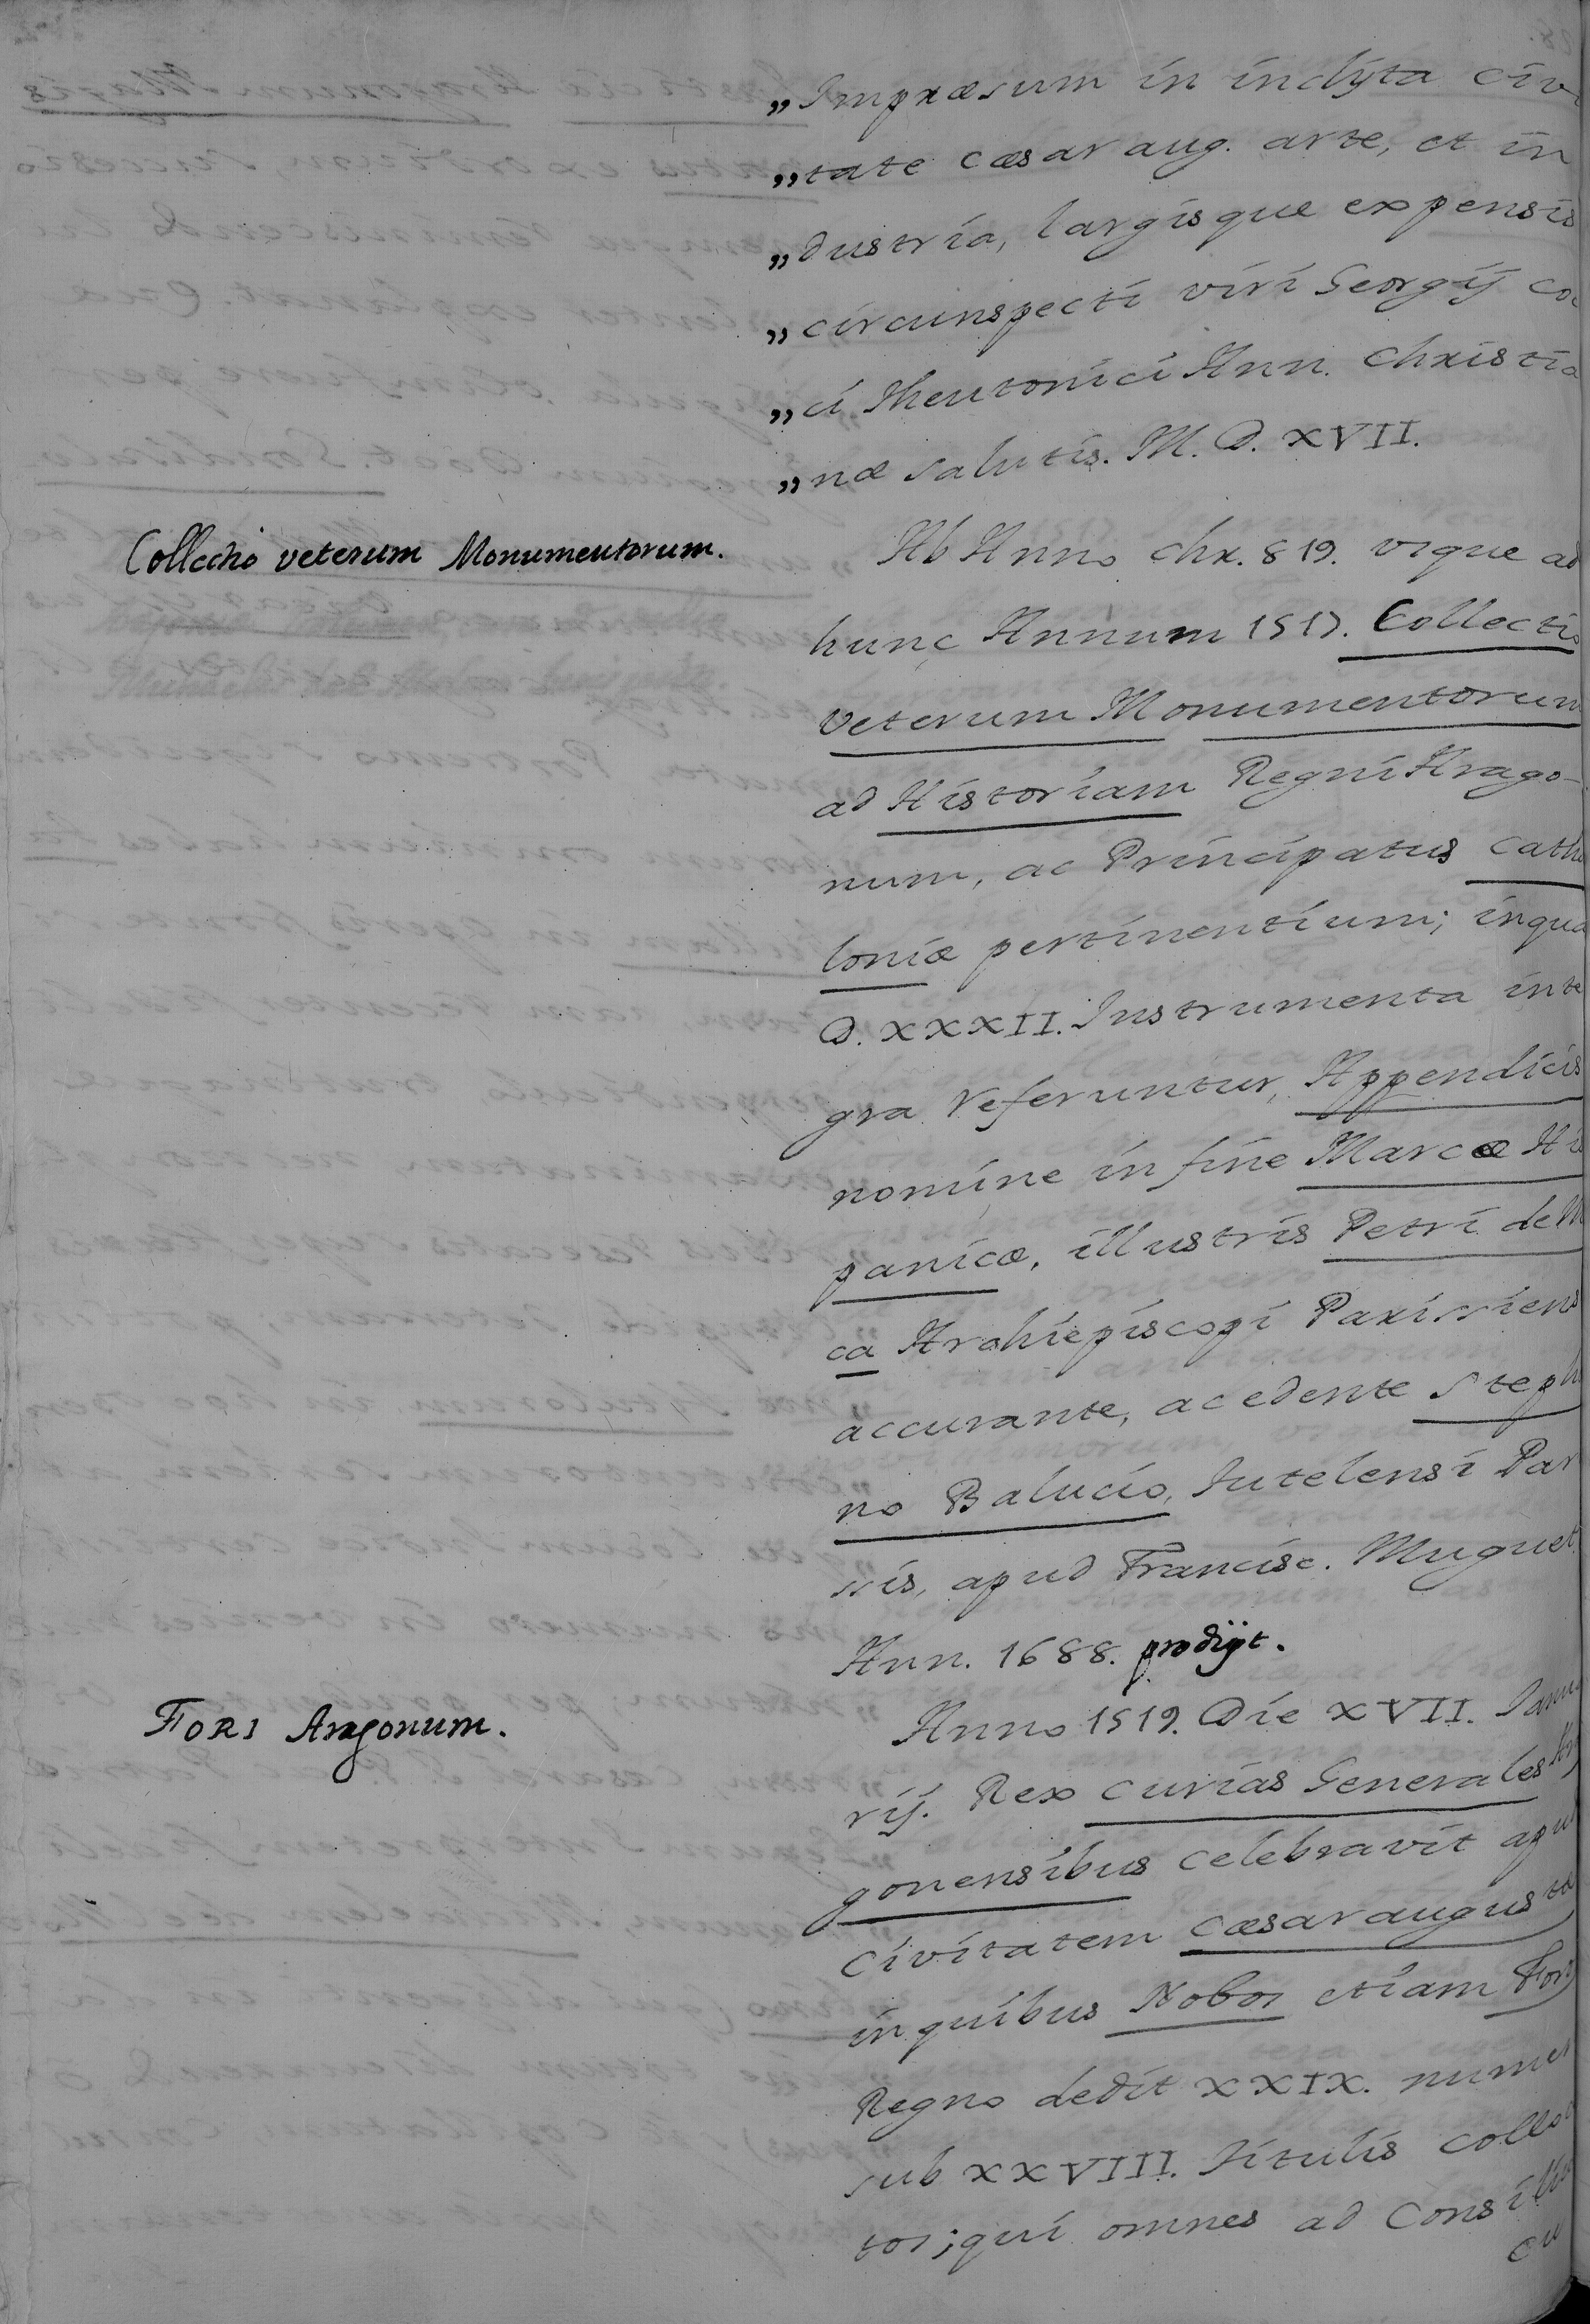 „Impræsum in inclÿta civi
„tate cæsaraug. arte, et in
„dustria, largisque expensis
„circunspecti viri Georgij co
„ci Theutonici Ann. christia
„næ salutis. M. D. XVII.
Collectio veterum Monumentorum.
Ab Anno chr. 819. vsque ad
hunc Annum 1517. Collectio
veterum Monumentorum
ad Historiam Regni Arago-
num, ac Principatus Catha
loniæ pertinentium; inqua
D. XXXII. Instrumenta inte
gra referuntur, Appendicis
nomine in fine Marcæ His
panicæ, illustris Petri de M
ca Archiepiscopi Parissiens
accurante, acedente steph
no Balucio, Tutelensi Par
ssis, apud Francisc. Muguet
Ann. 1688. prodijt.
FORI Aragonum.
Anno 1519. Die XVII. Janu
rij. Rex curias Generales
gonensibus celebravit apu
civitatem cæsaraugusta
inquibus Nobos etiam For
Regno dedit XXIX. numer
sub XXVIII. titulis colla
tos; qui omnes ad Cons